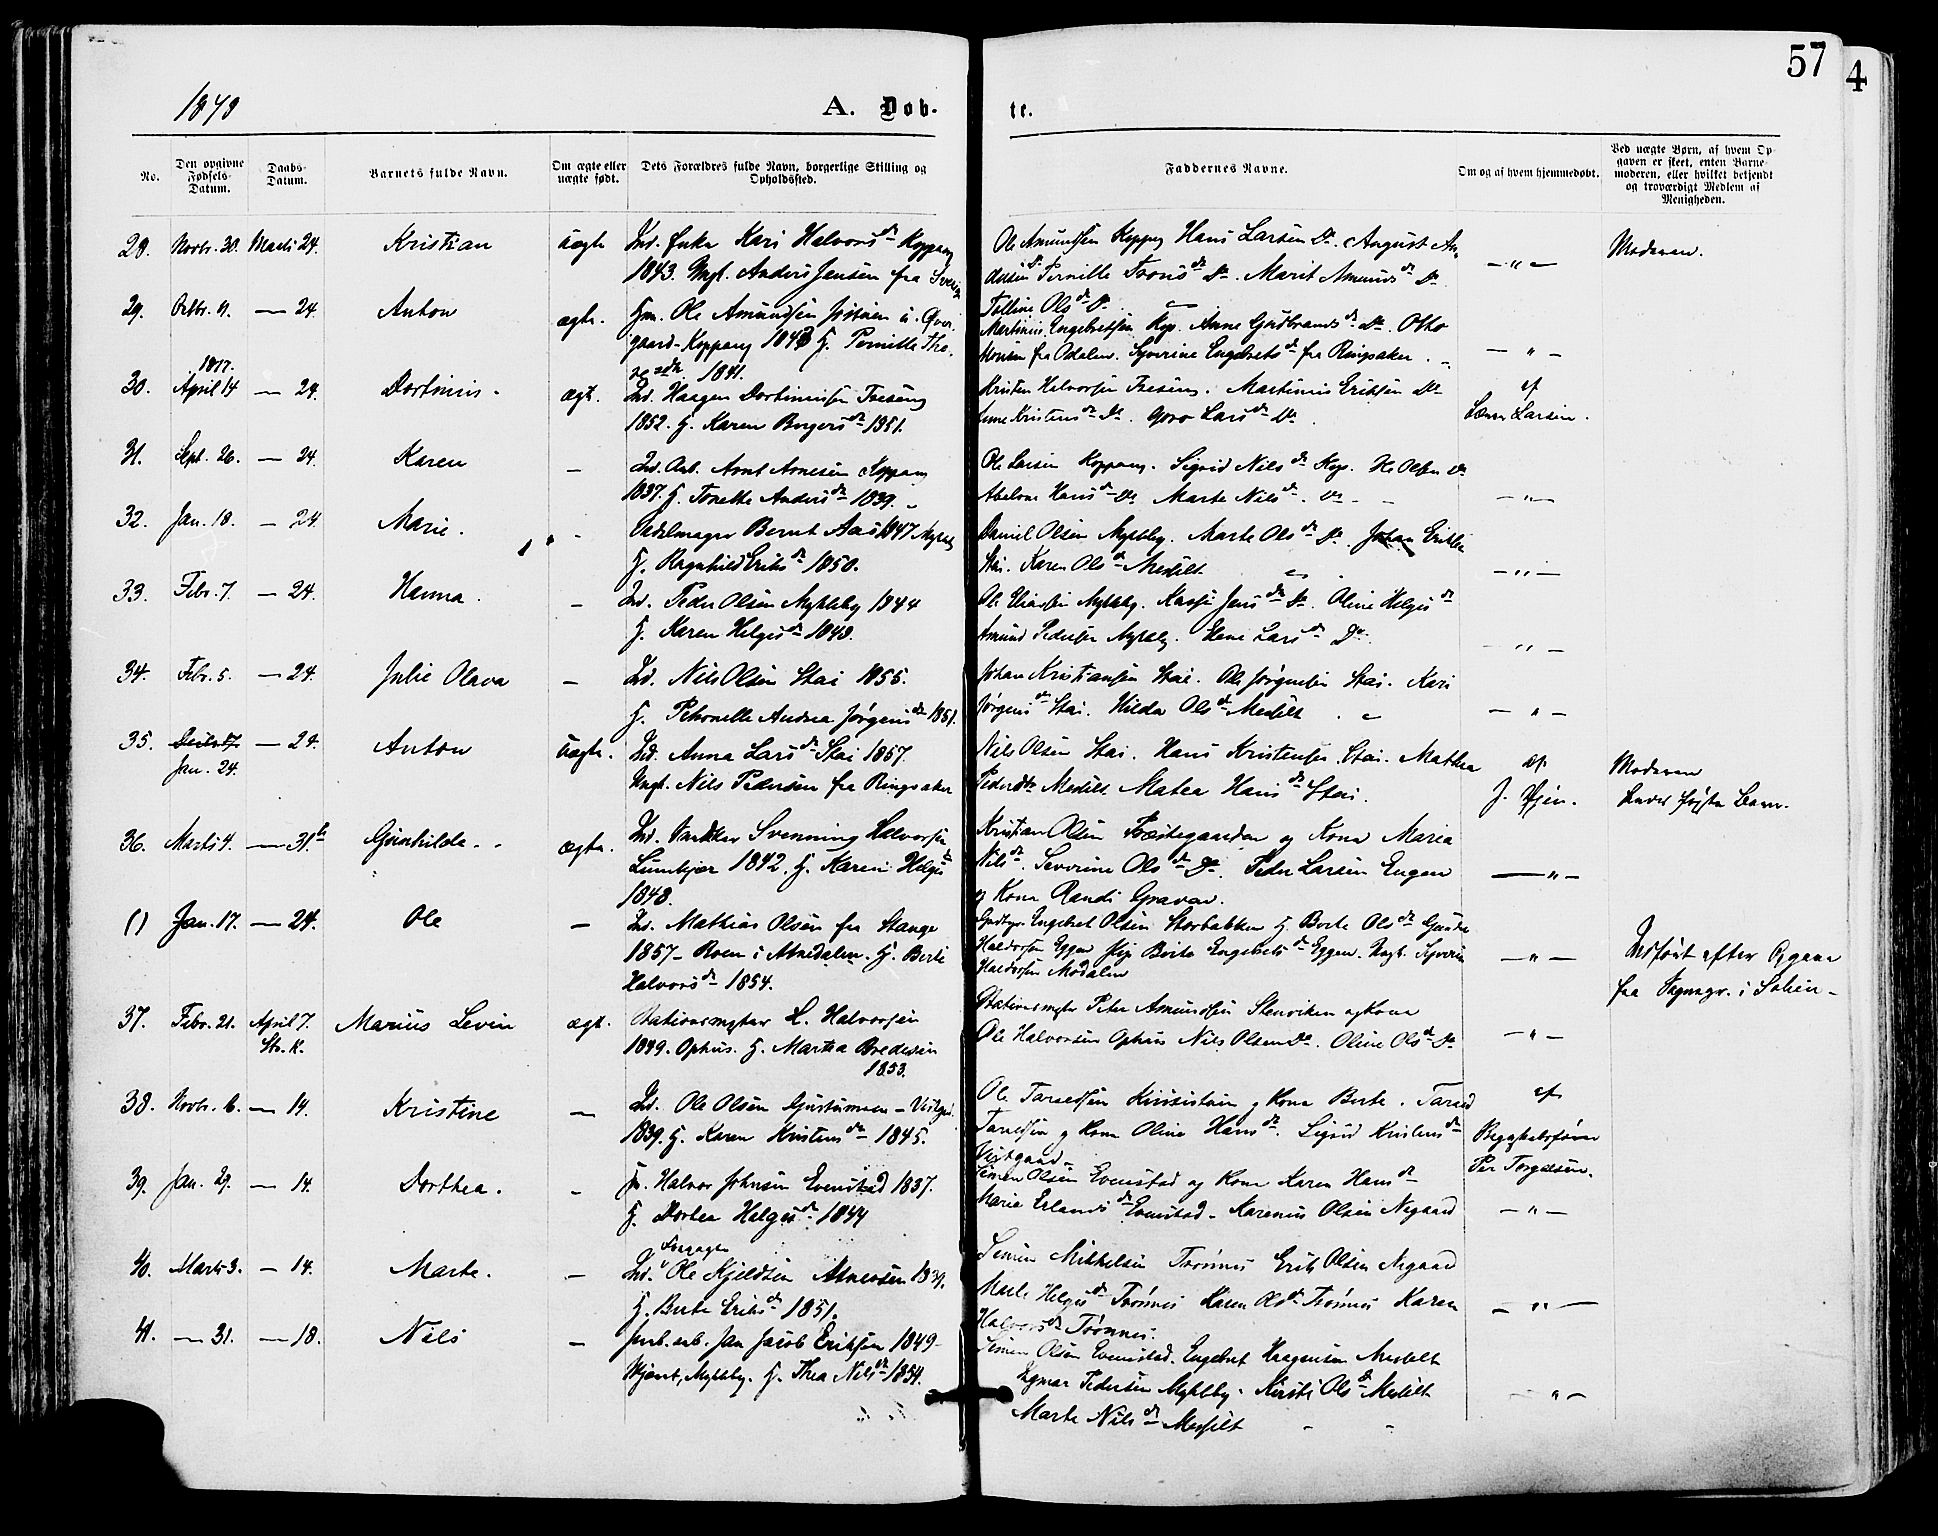 57
4
1878
A. Døb-
te.
No.
Den opgivne Fødsels-Datum.
Daabs-Datum.
Barnets fulde Navn.
Om ægte eller uægte født.
Dets Forældres fulde Navn, borgerlige Stilling og Opholdssted.
Faddernes Navne.
Om og af hvem hjemmedøbt.
Ved uægte Børn, af hvem Opgaven er skeet, enten Barnemoderen, eller hvilket betjendt og troværdigt Medlem af Menigheden.
28. Novbr. 30. Marts 24. Kristian uægte Ind. Enke Kari Halvorsdr Koppang
1843. Ungk. Anders Jensen fra Sverige
Ole Amundsen Koppang Hans Larsen Do. August An-
dersen Do Pernille Tronsdr Do. Marit Amundsdr Do
Telline Olsdr Do
— " —
Moderen.
29. Octbr. 9. — 24. Anton ægte. Gm. Ole Amundsen
gaard-Koppang 1843 H. Pernille
1841.
Martinus Engebretsen Kop. Anne Gudbrandsdr Do. Otto
fra Odalen. Syverine Engebretsdr fra Ringsaker.
— " —
1877.
30. April 14 — 24. Dortinius. ægt. Ind. Haagen Dortiniussen Treseng
1852. H. Karen Bergersdr 1851.
Kristen Halvorsen Treseng. Martinus Eriksen Do
Anne Kristensdr Do. Goro Larsdr Do.
af
Larsen.
31. Sept. 26. — 24. Karen — Ind. Arb. Arnt Arnesen Koppang
1837. H. Tonette Andersdr 1839.
Ole Larsen Koppang. Sigrid Nilsdr Kop. H. Olsen Do
Abelone Hansdr Do Marte Nilsdr. Do
— " —
32. Jan. 18. — 24. Marie. — Sadelmager Bernt Aas 1847 Mykleby
H. Ragnhild Eriksdr 1850.
Daniel Olsen Mykleby. Marte Olsdr Do. Johan Eriksen
Stai. Karen Olsdr Messelt
— " —
33. Febr. 7. — 24. Hanna. — Ind. Peder Olsen Mykleby 1844
H. Karen Helgesdr 1848.
Ole Eriksen Mykleby. Kasse Jensdr Do. Oline Helgesdr
Amund Pedersen Mykleby. Larsdr Do.
— " —
34. Febr. 5. — 24. Julie Olava — Ind. Nils Olsen Stai 1855.
H. Petronelle Andrea Jørgensdr 1851.
Johan Kristiansen Stai. Ole Jørgensen Stai. Kari
Jørgensdr Stai. Hilda Olsdr Messelt
— " —
35. Jan. 24. — 24. Anton uægte. Ind. Anna Larsdr Stai 1857.
Ungk. Nils Pedersen fra Ringsaker
Nils Olsen Stai. Hans Kristensen Stai. Mathea
Pedersdtr Messelt Matea Hansdr Stai.
af
J. Hjen.
Moderen
36. Marts 4. — 31te Gunhilda. ægte. Ind. Snedker Svenning Halvorsen
1842. H. Karen Helgesdr
1848.
Kristian Olsen Prestegaarden og Kona Maria
Nilsdr. Severine Olsdr Do. Peder Larsen Engen
og Kona Randi Gravar.
— " —
() Jan. 17. — 24. Ole — Ind. Mathias Olsen fra Stange
1857 - Roen i Atnedalen. H. Berte
Halvorsdr 1854.
Gudbr. Engebret Olsen Storbakken H. Berte Olsdr Gunder
Haldorsen Eggen Pige Berte Engebretsdr Eggen. Ungk. Syverin
Haldorsen Modalen
— " —
Indført efter Opgave
fra Sognepr. i Sollien
37. Febr. 21. April 7. Marius Levin ægt. Stationsmester H. Halvorsen
Sto. K. 1849. Ophus. H. Martea Bredesen
1853.
Stationsmester Peter Amundsen Stenviken og Kona
Ole Halvorsen Ophus Nils Olsen Do. Oline Olsdr Do
— " —
38. Novbr. 6. — 14. Kristine — Ind. Ole Olsen
1839. H. Karen Kristensdr 1845.
Ole Taraldsen og Kona Berte. Tarald
Taraldsen og Kona Oline Hansdr. Sigrid Kristensdr
Vestgaard
af
Regnskabsfører
Per Torgalsen.
39. Jan. 29. — 14. Dorthea. — Halvor Johnsen Evenstad 1837.
H. Dortea Helgesdr 1844
Simen Olsen Evenstad og Kona Karen Hansdr
Marie Erlandsdr Evenstad. Karenius Olsen Negaard
— " —
40. Marts 3. — 14. Marte. — Forpagter
Ind. Ole Kjeldsen Atneosen 1839.
H. Berte Eriksdr 1851.
Simen Mikkelsen Trønnes Erik Olsen Negaard
Marte Helgesdr Trønnes Karen Olsdr Trønnes Karen
Halvorsdr Trønnes.
— " —
41. — 31. — 18. Nils — Jernb. arb. Jan Jacob Eriksen 1849-
Mykleby. H. Thea Nilsdr 1854.
Simen Olsen Evenstad. Engebret Haagensen Messelt
Ingmar Pedersen Mykleby. Kirsti Olsdr Messelt
Marte Nilsdr Messelt
— " —